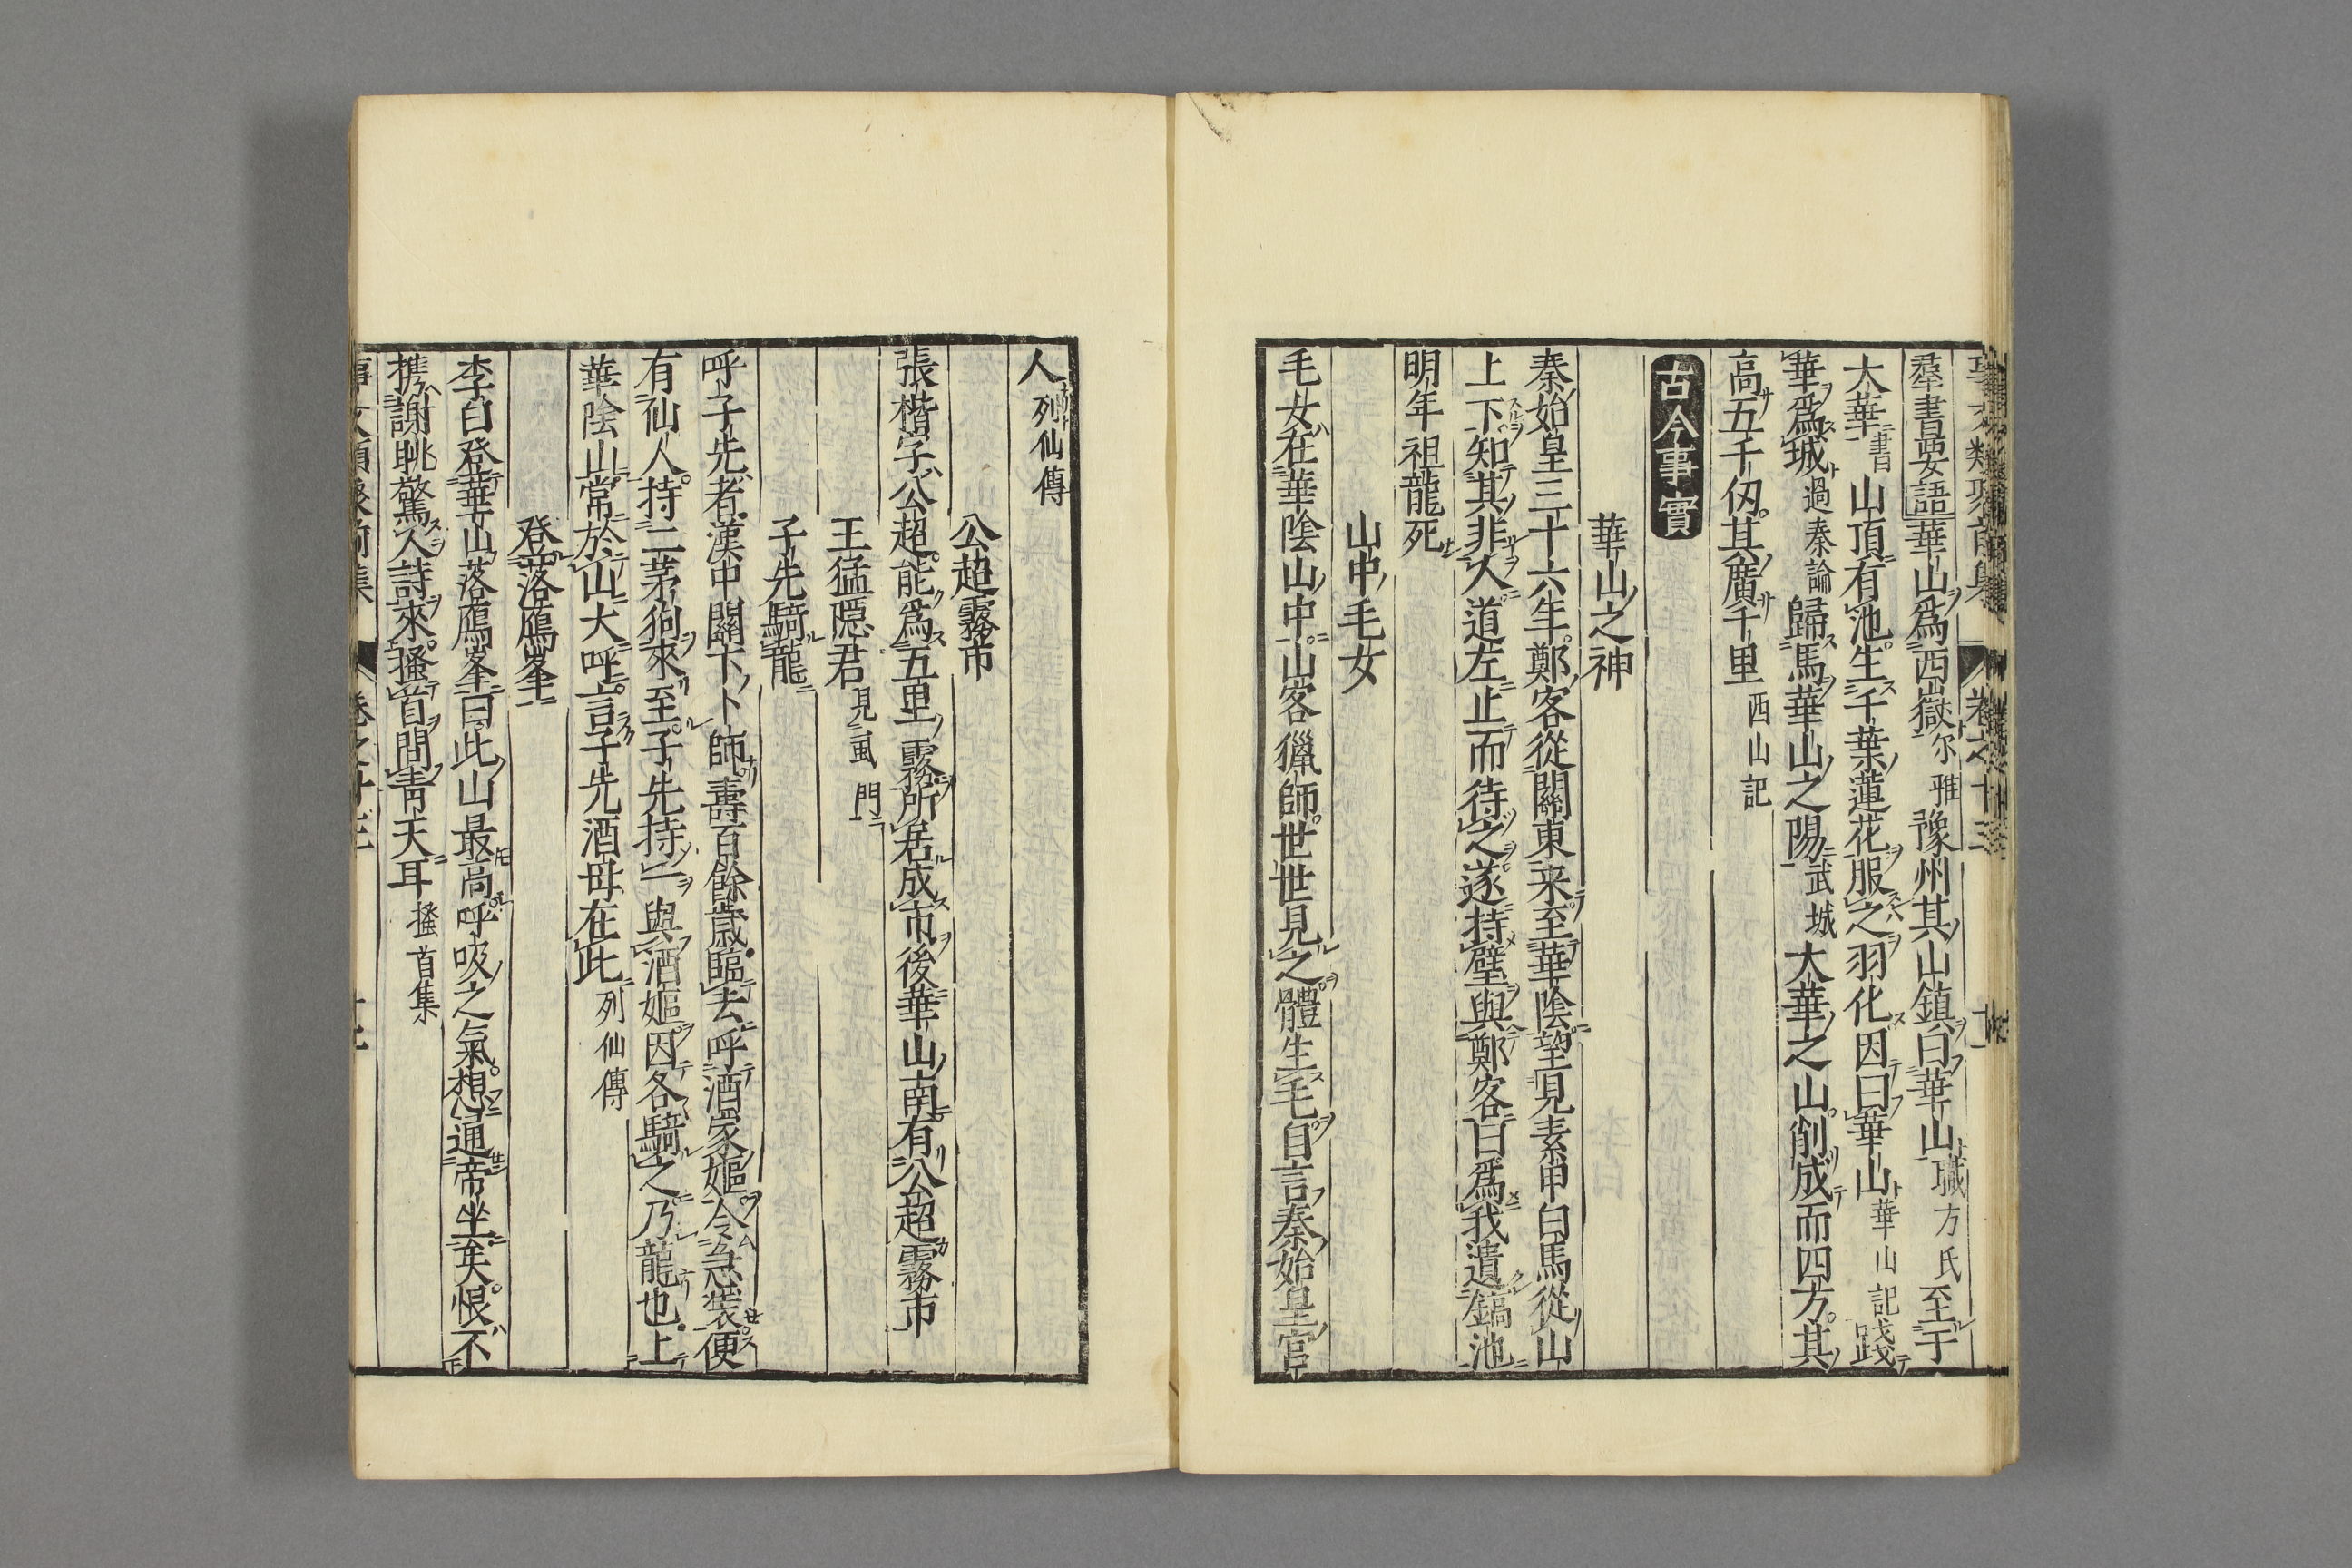 羣書要語華山爲西嶽尔雅豫州其山鎮曰華山職方氏至于
大華書山頂有池生千葉蓮花服之羽化因曰華山華山記踐
華爲城過秦論歸馬華山之陽武城大華之山削成而四方其
高五千仞其廣千里西山記
古今事實
華山之神
秦始皇三十六年鄭客從關東来至華陰望見素甲白馬從山
上下知其非人道左止而待之遂持璧與鄭客曰爲我遺鎬池
明年祖龍死
山中毛女
毛女在華陰山中山客獵師世世見之體生毛自言秦始皇宮
人列仙傳
公超霧市
張楷字公超能爲五里霧所居成市後華山南有公超霧市
王猛隠君見虱門
子先騎龍
呼子先者漢中關下卜師壽百餘歳臨去呼酒家嫗令急裝便
有仙人持二茅狗來至子先持一與酒嫗因各騎之乃龍也上
華陰山常於山大呼言子先酒母在此列仙傳
登落鴈峯
李白登華山落鴈峯曰此山最高呼吸之氣想通帝坐矣恨不
携謝眺驚人詩來搔首問青天耳搔首集